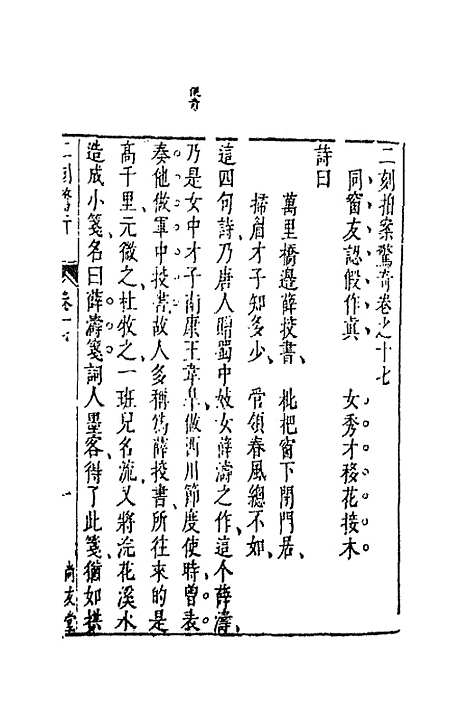 二刻拍案驚奇卷之十七
同窗友認假作真　女秀才移花接木
詩曰
萬里橋邊薛校書、　枇杷窗下閉門居、
掃眉才子知多少、　管領春風總不如、
這四句詩乃唐人贈蜀中妓女薛濤之作、這个薛濤、
乃是女中才子南康王韋皋做西川節度使時、曾表
奏他做軍中校書、故人多稱為薛校書所往來的是
高千里元微之杜牧之一班兒名流、又將浣花溪水
造成小箋、名曰薛濤箋、詞人墨客得了此箋、猶如拱
二刻驚奇　卷十七　一　尚友堂